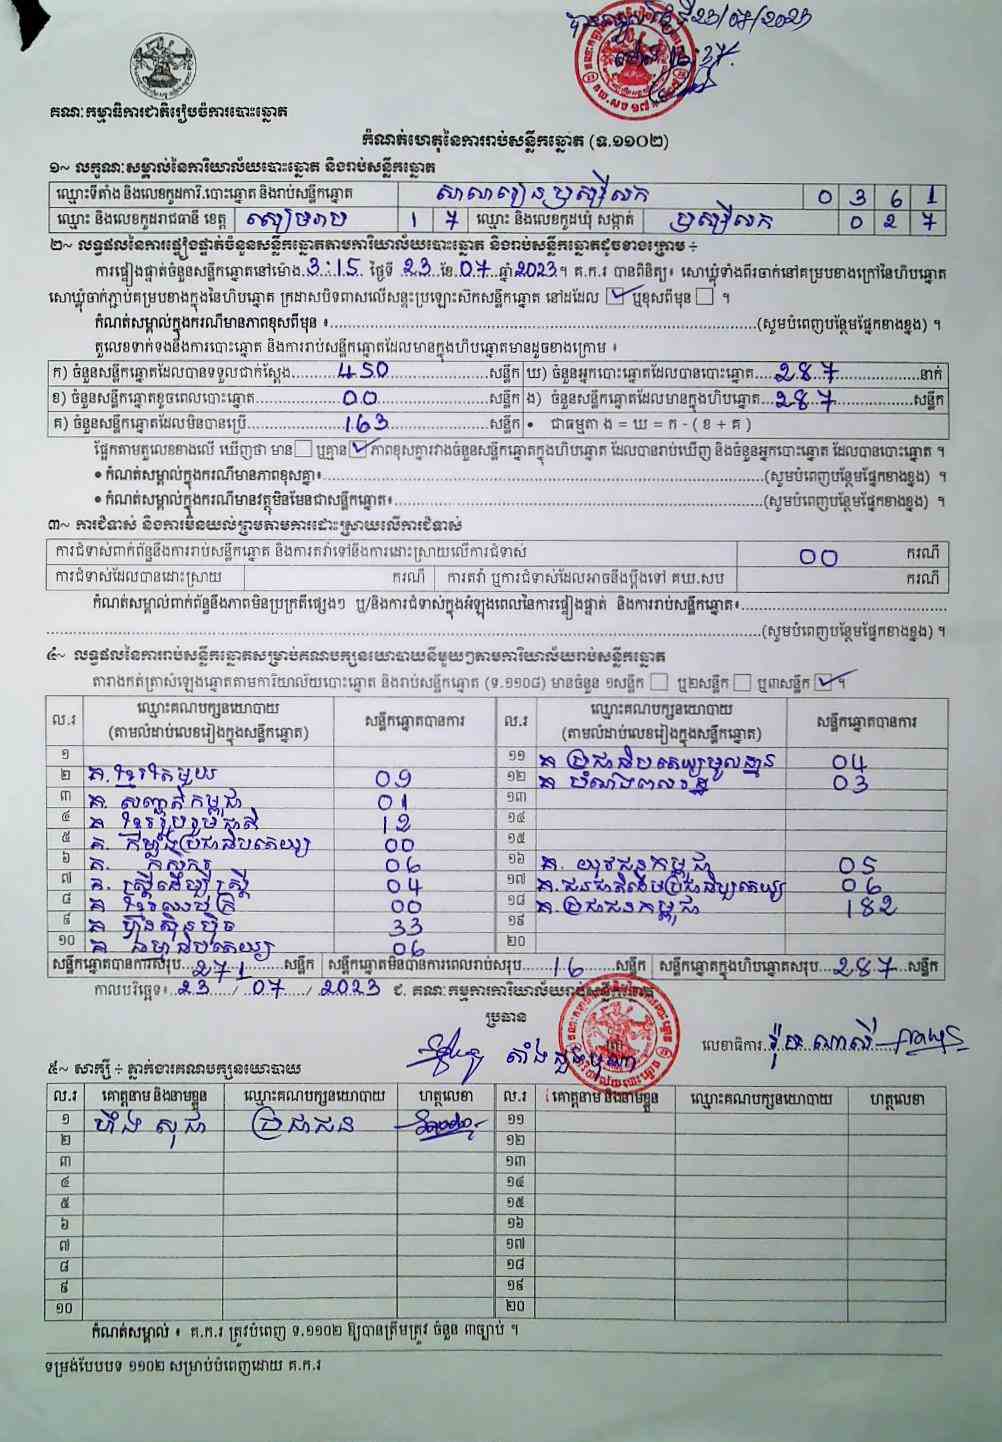 គណៈកម្មាធិការជាតិរៀបចំការបោះឆ្នោត
កំណត់ហេតុនៃការរាប់សន្លឹកឆ្នោត (ទ.១១០២)
១~ លក្ខណៈសម្គាល់នៃការិយាល័យបោះឆ្នោត និងរាប់សន្លឹកឆ្នោត
ឈ្មោះទីតាំង និងលេខកូដការិ.បោះឆ្នោត និងរាប់សន្លឹកឆ្នោត សាលារៀនឫស្សីលក 0 3 6 1
ឈ្មោះ និងលេខកូដរាជធានី ខេត្ត សៀមរាប 1 7 ឈ្មោះ និងលេខកូដឃុំ សង្កាត់ ឫស្សីលក 0 2 7
២~ លទ្ធផលនៃការផ្ទៀងផ្ទាត់ចំនួនសន្លឹកឆ្នោតតាមការិយាល័យបោះឆ្នោត និងរាប់សន្លឹកឆ្នោតដូចខាងក្រោម ÷
ការផ្ទៀងផ្ទាត់ចំនួនសន្លឹកឆ្នោតនៅម៉ោង 3:15 ថ្ងៃទី 23 ខែ 07 ឆ្នាំ 2023 ។ គ.ក.រ បានពិនិត្យ៖ សោឃ្លុំទាំងពីរចាក់នៅគម្របខាងក្រៅនៃហិបឆ្នោត
សោឃ្លុំចាក់ភ្ជាប់គម្របខាងក្នុងនៃហិបឆ្នោត ក្រដាសបិទពាសលើសន្ទះប្រឡោះស៊កសន្លឹកឆ្នោត នៅដដែល ☑ ឬខុសពីមុន ☐ ។
កំណត់សម្គាល់ក្នុងករណីមានភាពខុសពីមុន ៖ (សូមបំពេញបន្ថែមផ្នែកខាងខ្នង) ។
តួលេខទាក់ទងនឹងការបោះឆ្នោត និងការរាប់សន្លឹកឆ្នោតដែលមានក្នុងហិបឆ្នោតមានដូចខាងក្រោម ៖
ក) ចំនួនសន្លឹកឆ្នោតដែលបានទទួលជាក់ស្ដែង 450 សន្លឹក ឃ) ចំនួនអ្នកបោះឆ្នោតដែលបានបោះឆ្នោត 287 នាក់
ខ) ចំនួនសន្លឹកឆ្នោតខូចពេលបោះឆ្នោត 00 សន្លឹក ង) ចំនួនសន្លឹកឆ្នោតដែលមានក្នុងហិបឆ្នោត 287 សន្លឹក
គ) ចំនួនសន្លឹកឆ្នោតដែលមិនបានប្រើ 163 សន្លឹក • ជាធម្មតា ង = ឃ = ក - ( ខ + គ )
ផ្អែកតាមតួលេខខាងលើ ឃើញថា មាន ☐ ឬគ្មាន ☑ ភាពខុសគ្នារវាងចំនួនសន្លឹកឆ្នោតក្នុងហិបឆ្នោត ដែលបានរាប់ឃើញ និងចំនួនអ្នកបោះឆ្នោត ដែលបានបោះឆ្នោត ។
• កំណត់សម្គាល់ក្នុងករណីមានភាពខុសគ្នា៖ (សូមបំពេញបន្ថែមផ្នែកខាងខ្នង) ។
• កំណត់សម្គាល់ក្នុងករណីមានវត្ថុមិនមែនជាសន្លឹកឆ្នោត៖ (សូមបំពេញបន្ថែមផ្នែកខាងខ្នង) ។
៣~ ការជំទាស់ និងការមិនយល់ព្រមតាមការដោះស្រាយលើការជំទាស់
ការជំទាស់ពាក់ព័ន្ធនឹងការរាប់សន្លឹកឆ្នោត និងការតវ៉ាទៅនឹងការដោះស្រាយលើការជំទាស់ 00 ករណី
ការជំទាស់ដែលបានដោះស្រាយ ករណី ការតវ៉ា ឬការជំទាស់ដែលអាចនឹងប្ដឹងទៅ គឃ.សប ករណី
កំណត់សម្គាល់ពាក់ព័ន្ធនឹងភាពមិនប្រក្រតីផ្សេងៗ ឬ/និងការជំទាស់ក្នុងអំឡុងពេលនៃការផ្ទៀងផ្ទាត់ និងការរាប់សន្លឹកឆ្នោត៖
(សូមបំពេញបន្ថែមផ្នែកខាងខ្នង) ។
៤~ លទ្ធផលនៃការរាប់សន្លឹកឆ្នោតសម្រាប់គណបក្សនយោបាយនីមួយៗតាមការិយាល័យរាប់សន្លឹកឆ្នោត
តារាងកត់ត្រាសំឡេងឆ្នោតតាមការិយាល័យបោះឆ្នោត និងរាប់សន្លឹកឆ្នោត (ទ.១១០៨) មានចំនួន ១សន្លឹក ☐ ឬ២សន្លឹក ☐ ឬ៣សន្លឹក ☑ ។
ល.រ ឈ្មោះគណបក្សនយោបាយ (តាមលំដាប់លេខរៀងក្នុងសន្លឹកឆ្នោត) សន្លឹកឆ្នោតបានការ ល.រ ឈ្មោះគណបក្សនយោបាយ (តាមលំដាប់លេខរៀងក្នុងសន្លឹកឆ្នោត) សន្លឹកឆ្នោតបានការ
១ ១១ គ ប្រជាធិបតេយ្យមូលដ្ឋាន 04
២ គ.ខ្មែរតែមួយ 09 ១២ គ បំណងពលរដ្ឋ 03
៣ គ. សញ្ជាតិកម្ពុជា 01 ១៣
៤ គ ខ្មែររួបរួមជាតិ 12 ១៤
៥ គ. កម្លាំងប្រជាធិបតេយ្យ 00 ១៥
៦ គ. កសិករ 06 ១៦ គ. យុវជនកម្ពុជា 05
៧ គ. ស្ត្រីដើម្បីស្ត្រី 04 ១៧ គ.ជនជាតិដើមប្រជាធិបតេយ្យ 06
៨ គ ខ្មែរឈប់ក្រ 00 ១៨ គ.ប្រជាជនកម្ពុជា 182
៩ គ ហ៊្វុនស៊ិនប៉ិច 33 ១៩
១០ គ ធម្មាធិបតេយ្យ 06 ២០
សន្លឹកឆ្នោតបានការសរុប 271 សន្លឹក សន្លឹកឆ្នោតមិនបានការពេលរាប់សរុប 16 សន្លឹក សន្លឹកឆ្នោតក្នុងហិបឆ្នោតសរុប 287 សន្លឹក
កាលបរិច្ឆេទ៖ 23 / 07 / 2023 ជ. គណៈកម្មការការិយាល័យរាប់សន្លឹកឆ្នោត
ប្រធាន
លេខាធិការ
៥~ សាក្សី ÷ ភ្នាក់ងារគណបក្សនយោបាយ
ល.រ គោត្តនាម និងនាមខ្លួន ឈ្មោះគណបក្សនយោបាយ ហត្ថលេខា ល.រ គោត្តនាម និងនាមខ្លួន ឈ្មោះគណបក្សនយោបាយ ហត្ថលេខា
១ ហ៊ឹង សុជា ប្រជាជន ១១
២ ១២
៣ ១៣
៤ ១៤
៥ ១៥
៦ ១៦
៧ ១៧
៨ ១៨
៩ ១៩
១០ ២០
កំណត់សម្គាល់ ៖ គ.ក.រ ត្រូវបំពេញ ទ.១១០២ ឱ្យបានត្រឹមត្រូវ ចំនួន ៣ច្បាប់ ។
ទម្រង់បែបបទ ១១០២ សម្រាប់បំពេញដោយ គ.ក.រ